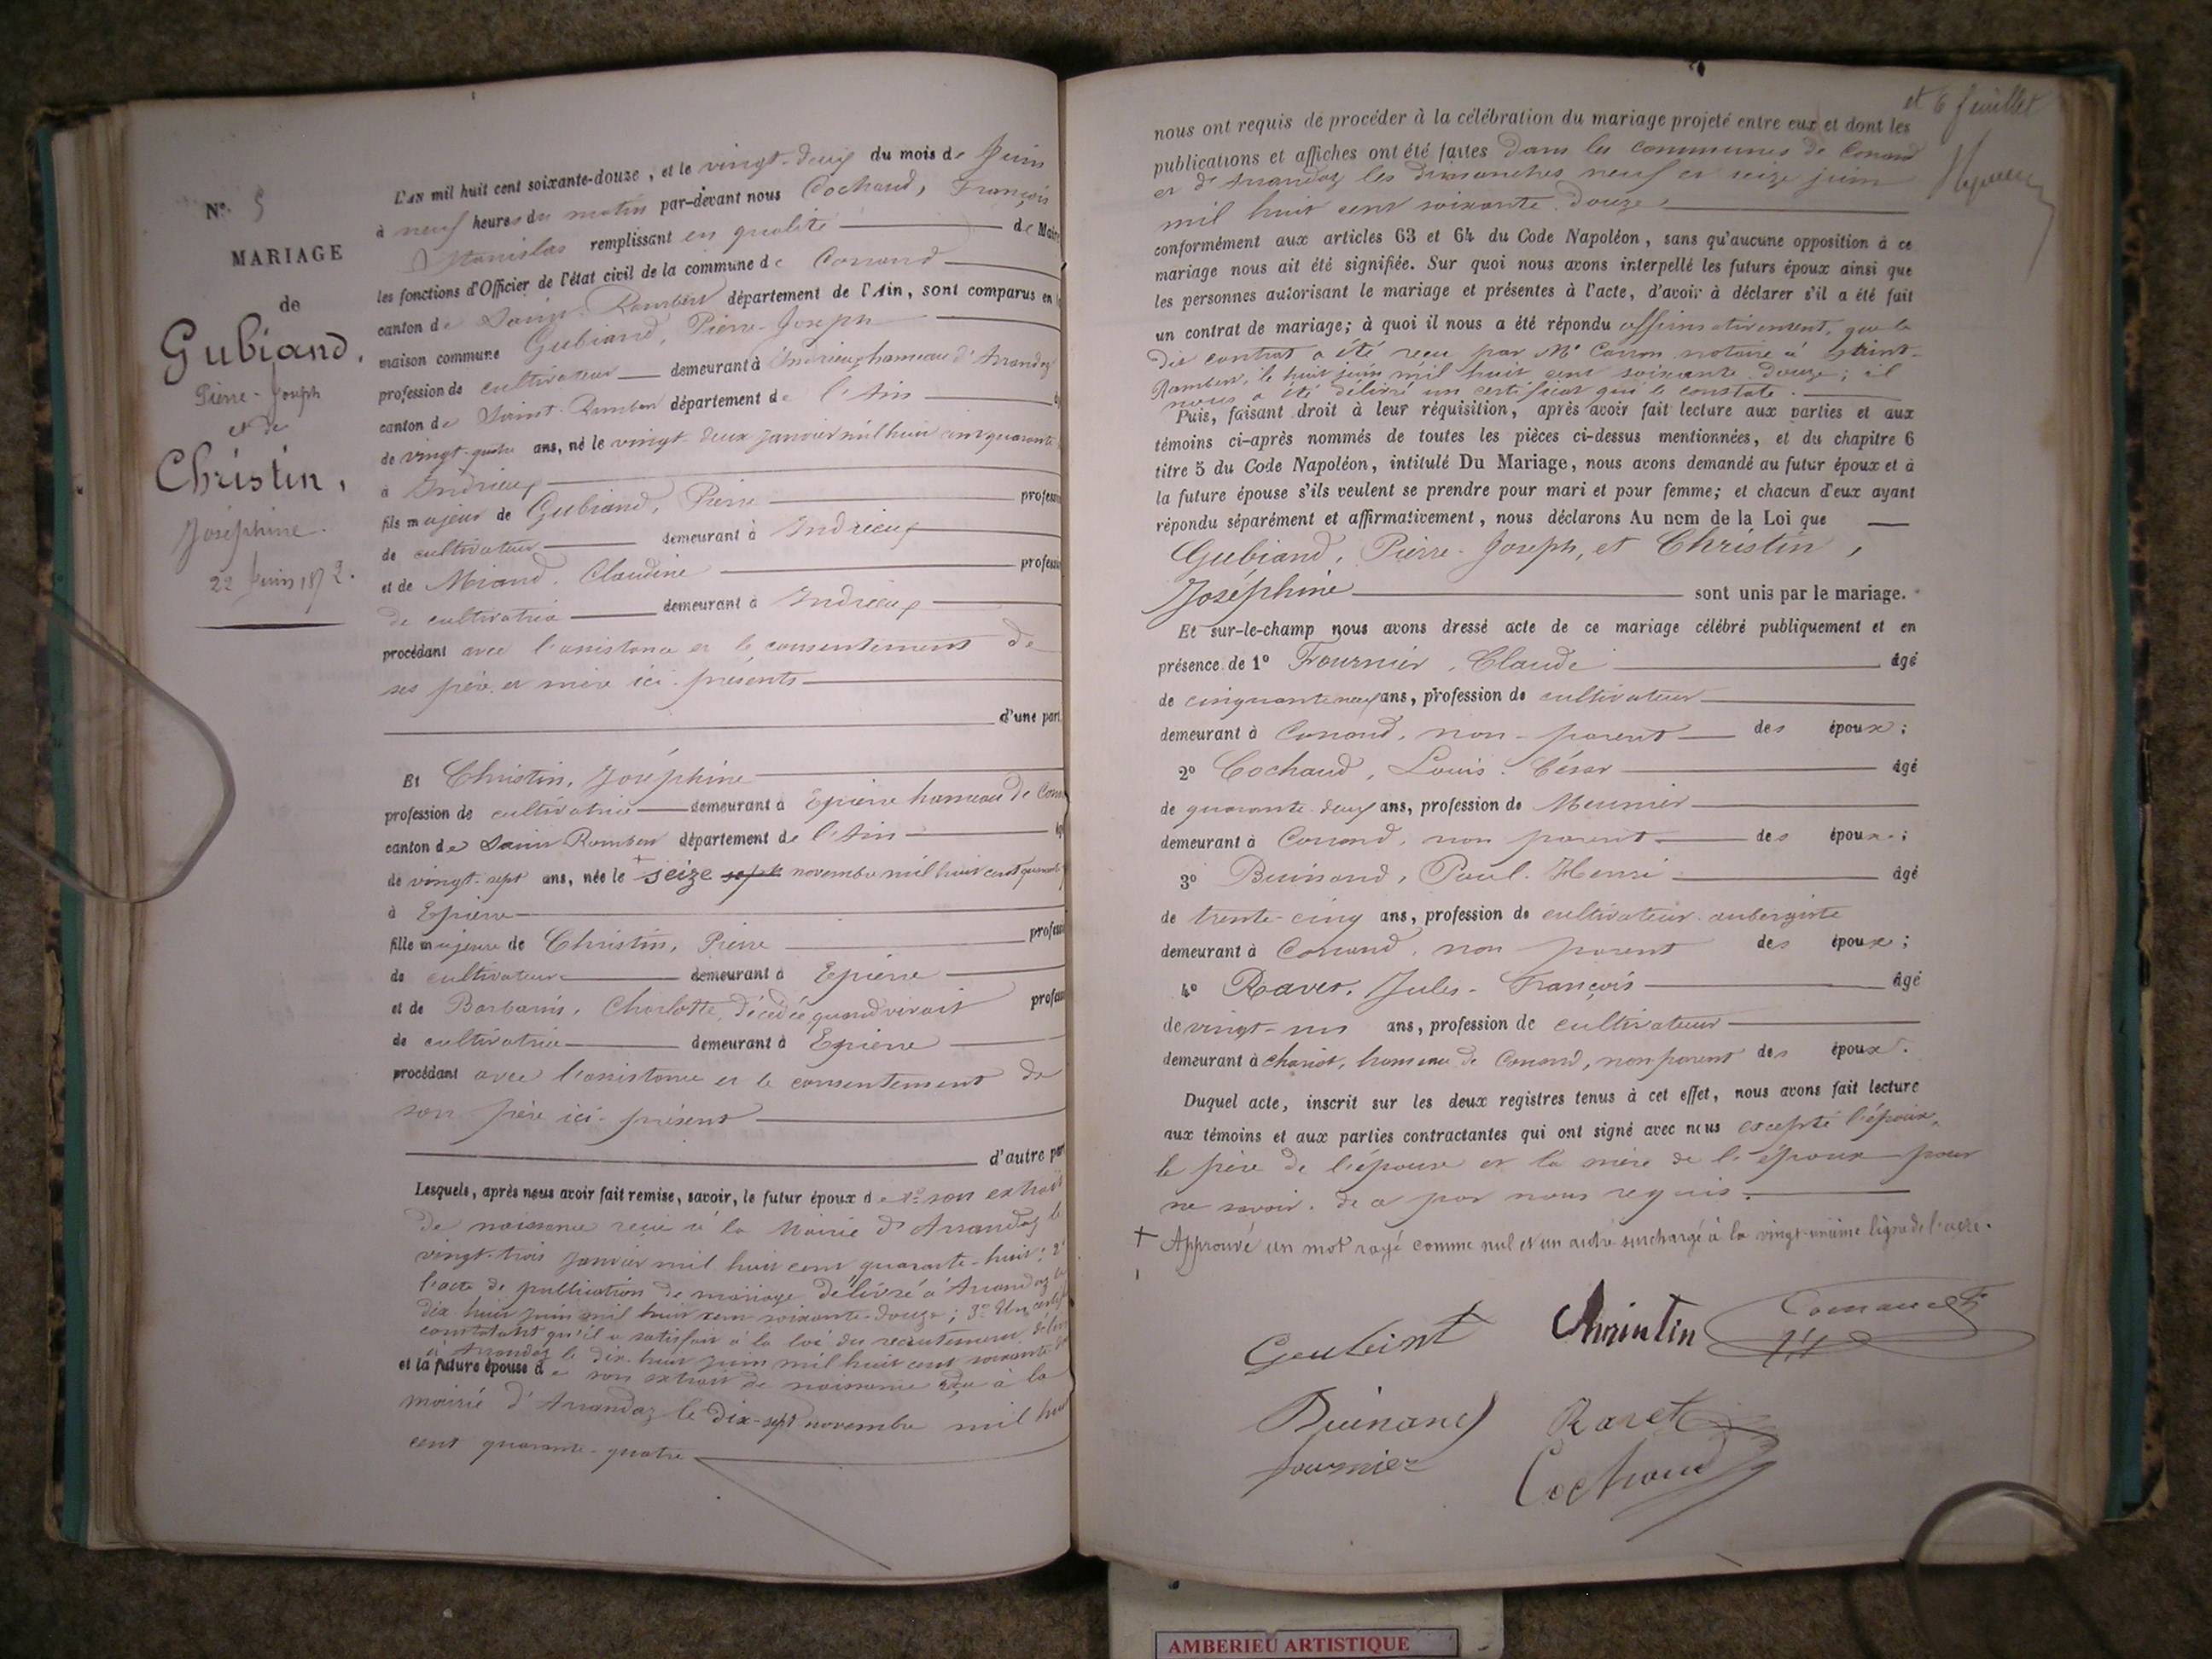 N° 5
MARIAGE
de
Gubiand,
Pierre-Joseph
et de
Christin,
Joséphine.
22 Juin 1872.
L'AN mil huit cent soixante-douze, et le vingt-deux du mois de Juin
à neuf heures du matin par-devant nous Cochaud, François
Stanislas remplissant en qualité de Maire
les fonctions d'Officier de l'état civil de la commune de Conand
canton de Saint-Rambert département de l'Ain, sont comparus en
maison commune Gubiand, Pierre-Joseph
profession de cultivateur demeurant à Indrieux hameau d'Arandaz
canton de Saint-Rambert département de l'Ain
de vingt-quatre ans, né le vingt-deux janvier mil huit cent quarante
à Indrieux
fils majeur de Gubiand, Pierre profession
de cultivateur demeurant à Indrieux
et de Miand, Claudine profession
de cultivatrice demeurant à Indrieux
procédant avec l'assistance et le consentement de
ses père et mère ici présents
d'une part,
Et Christin, Joséphine
profession de cultivatrice demeurant à Epierre hameau de Con
canton de Saint Rambert département de l'Ain
de vingt-sept ans, née le + seize novembre mil huit cent quarante
à Epierre
fille majeure de Christin, Pierre profess
de cultivateur demeurant à Epierre
et de Barbarin, Charlotte, décédée quand vivait profess
de cultivatrice demeurant à Epierre
procédant avec l'assistance et le consentement de
son père ici-présent
d'autre part
Lesquels, après nous avoir fait remise, savoir, le futur époux de 1° son extrait
de naissance reçu à la Mairie d'Arrandaz le
vingt-trois janvier mil huit cent quarante-huit; 2°
l'acte de publication de mariage délivré à Arrandaz le
dix-huit juin mil huit cent soixante-douze; 3° Un certif
constatant qu'il a satisfait à la loi du recrutement délivré
à Arrandaz le dix-huit juin mil huit cent soixante
et la future épouse de son extrait de naissance reçu à la
mairie d'Arrandaz le dix-sept novembre mil huit
cent quarante-quatre
et 6 feuillet
nous ont requis de procéder à la célébration du mariage projeté entre eux et dont les
publications et affiches ont été faites dans les communes de Conand
et d'Arrandaz les dimanches neuf et seize juin
mil huit cent soixante-douze,
conformément aux articles 63 et 64 du Code Napoléon, sans qu'aucune opposition à ce
mariage nous ait été signifiée. Sur quoi nous avons interpellé les futurs époux ainsi que
les personnes autorisant le mariage et présentes à l'acte, d'avoir à déclarer s'il a été fait
un contrat de mariage; à quoi il nous a été répondu affirmativement, que le
dit contrat a été reçu par Me Carron notaire à Saint-
Rambert, le huit juin mil huit cent soixante-douze; il
nous a été délivré un certificat qui le constate.
Puis, faisant droit à leur réquisition, après avoir fait lecture aux parties et aux
témoins ci-après nommés de toutes les pièces ci-dessus mentionnées, et du chapitre 6
titre 5 du Code Napoléon, intitulé Du Mariage, nous avons demandé au futur époux et à
la future épouse s'ils veulent se prendre pour mari et pour femme; et chacun d'eux ayant
répondu séparément et affirmativement, nous déclarons Au nom de la Loi que
Gubiand, Pierre-Joseph, et Christin,
Joséphine sont unis par le mariage.
Et sur-le-champ nous avons dressé acte de ce mariage célébré publiquement et en
présence de 1° Fournier, Claude âgé
de cinquante neuf ans, profession de cultivateur
demeurant à Conand, non-parent des époux;
2° Cochaud, Louis-César âgé
de quarante-deux ans, profession de Meunier
demeurant à Conand, non parent des époux;
3° Buinand, Paul-Henri âgé
de trente-cinq ans, profession de cultivateur-aubergiste
demeurant à Conand, non parent des époux;
4° Ravet, Jules-François âgé
de vingt-un ans, profession de cultivateur
demeurant à chariot, hameau de Conand, non parent des époux.
Duquel acte, inscrit sur les deux registres tenus à cet effet, nous avons fait lecture
aux témoins et aux parties contractantes qui ont signé avec nous excepté l'époux,
le père de l'épouse et la mère de l'époux pour
ne savoir, de a par nous requis.
+ Approuvé un mot rayé comme nul et un autre surchargé à la vingt-unième ligne de l'acte.
Christin
Buinand Ravet
fournier Cochaud
AMBERIEU ARTISTIQUE